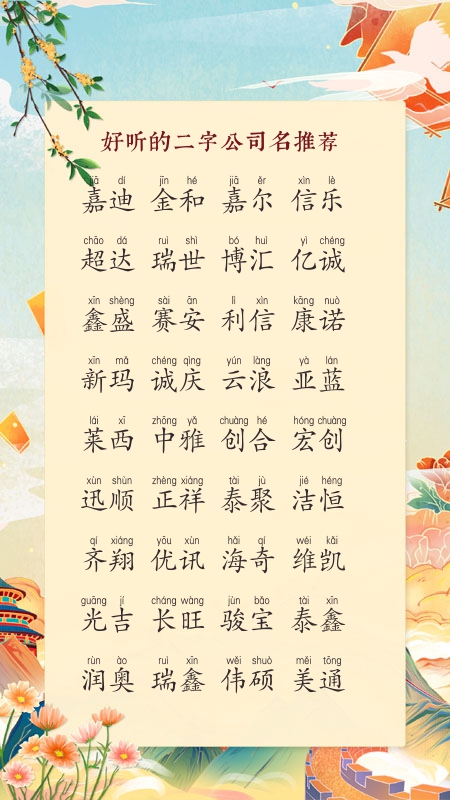 好听的二字公司名推荐
jiā dí jīn hé jiā ěr xìn lè
嘉迪 金和 嘉尔 信乐
chāo dá ruì shì bó huì yì chéng
超达 瑞世 博汇 亿诚
xīn shèng sài ān lì xìn kāng nuò
鑫盛 赛安 利信 康诺
xīn mǎ chéng qìng yún làng yà lán
新玛 诚庆 云浪 亚蓝
lái xī zhōng yǎ chuàng hé hóng chuàng
莱西 中雅 创合 宏创
xùn shùn zhèng xiáng tài jù jié héng
迅顺 正祥 泰聚 洁恒
qí xiáng yōu xùn hǎi qí wéi kǎi
齐翔 优讯 海奇 维凯
guāng jí cháng wàng jùn bǎo tài xīn
光吉 长旺 骏宝 泰鑫
rùn ào ruì xīn wěi shuò měi tōng
润奥 瑞鑫 伟硕 美通